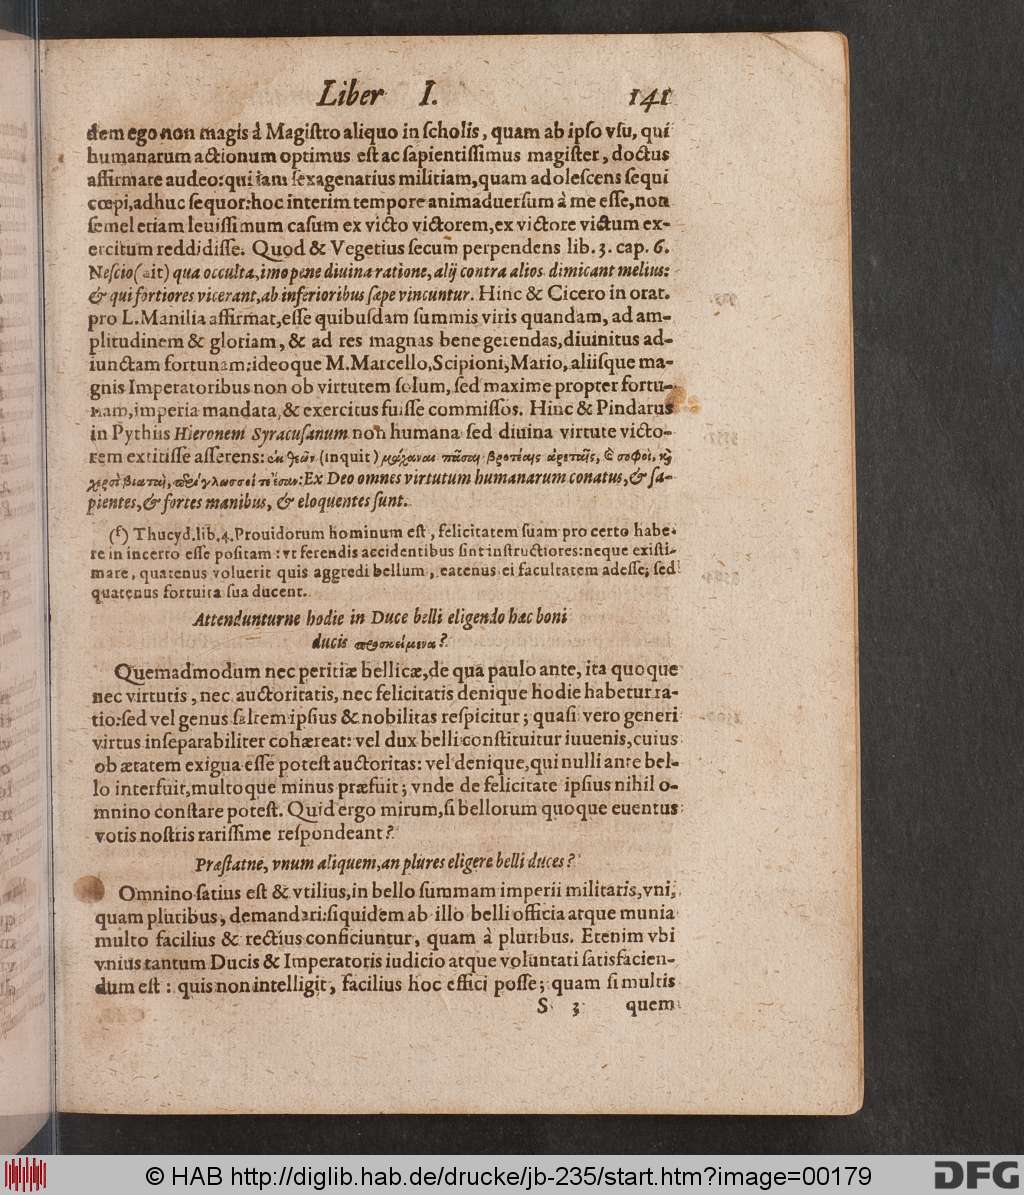 Liber I. 141
dem ego non magis à Magiſtro aliquo in ſcholis, quam ab ipſo vſu, qui
humanarum actionum optimus eſt ac ſapientiſſimus magiſter, doctus
affirmare audeo: qui iam ſexagenarius militiam, quam adoleſcens ſequi
cœpi, adhuc ſequor: hoc interim tempore animaduerſum à me eſſe, non
ſemel etiam leuiſſimum caſum ex victo victorem, ex victore victum ex-
ercitum reddidiſſe. Quod & Vegetius ſecum perpendens lib. 3. cap. 6.
Neſcio (ait) qua occulta, imo pene diuina ratione, alij contra alios dimicant melius:
& qui fortiores vicerant, ab inferioribus ſæpe vincuntur. Hinc & Cicero in orat.
pro L. Manilia affirmat, eſſe quibuſdam ſummis viris quandam, ad am-
plitudinem & gloriam, & ad res magnas bene gerendas, diuinitus ad-
iunctam fortunam: ideoque M. Marcello, Scipioni, Mario, aliiſque ma-
gnis Imperatoribus non ob virtutem ſolum, ſed maxime propter fortu-
nam, imperia mandata, & exercitus fuiſſe commiſſos. Hinc & Pindarus
in Pythiis Hieronem Syracuſanum non humana ſed diuina virtute victo-
rem extitiſſe aſſerens: ἐκ θεῶν (inquit) μαχαναὶ πᾶσαι βροτέαις ἀρεταῖς, & σοφοὶ, καὶ
χερσὶ βιαταὶ, : Ex Deo omnes virtutum humanarum conatus, & ſa-
pientes, & fortes manibus, & eloquentes ſunt.
(f) Thucyd. lib. 4. Prouidorum hominum eſt, felicitatem ſuam pro certo habe-
re in incerto eſſe poſitam: vt ferendis accidentibus ſint inſtructiores: neque exiſti-
mare, quatenus voluerit quis aggredi bellum, eatenus ei facultatem adeſſe; ſed
quatenus fortuita ſua ducent.
Attendunturne hodie in Duce belli eligendo hæc boni
ducis προσκείμενα?
Quemadmodum nec peritiæ bellicæ, de qua paulo ante, ita quoque
nec virtutis, nec auctoritatis, nec felicitatis denique hodie habetur ra-
tio: ſed vel genus ſaltem ipſius & nobilitas reſpicitur; quaſi vero generi
virtus inſeparabiliter cohæreat: vel dux belli conſtituitur iuuenis, cuius
ob ætatem exigua eſſe poteſt auctoritas: vel denique, qui nulli ante bel-
lo interfuit, multoque minus præfuit; vnde de felicitate ipſius nihil o-
mnino conſtare poteſt. Quid ergo mirum, ſi bellorum quoque euentus
votis noſtris rariſſime reſpondeant?
Præſtatne, vnum aliquem, an plures eligere belli duces?
Omnino ſatius eſt & vtilius, in bello ſummam imperii militaris, vni,
quam pluribus, demandari: ſiquidem ab illo belli officia atque munia
multo facilius & rectius conficiuntur, quam à pluribus. Etenim vbi
vnius tantum Ducis & Imperatoris iudicio atque voluntati ſatisfacien-
dum eſt: quis non intelligit, facilius hoc effici poſſe; quam ſi multis
S 3 quem
© HAB http://diglib.hab.de/drucke/jb-235/start.htm?image=00179
DFG